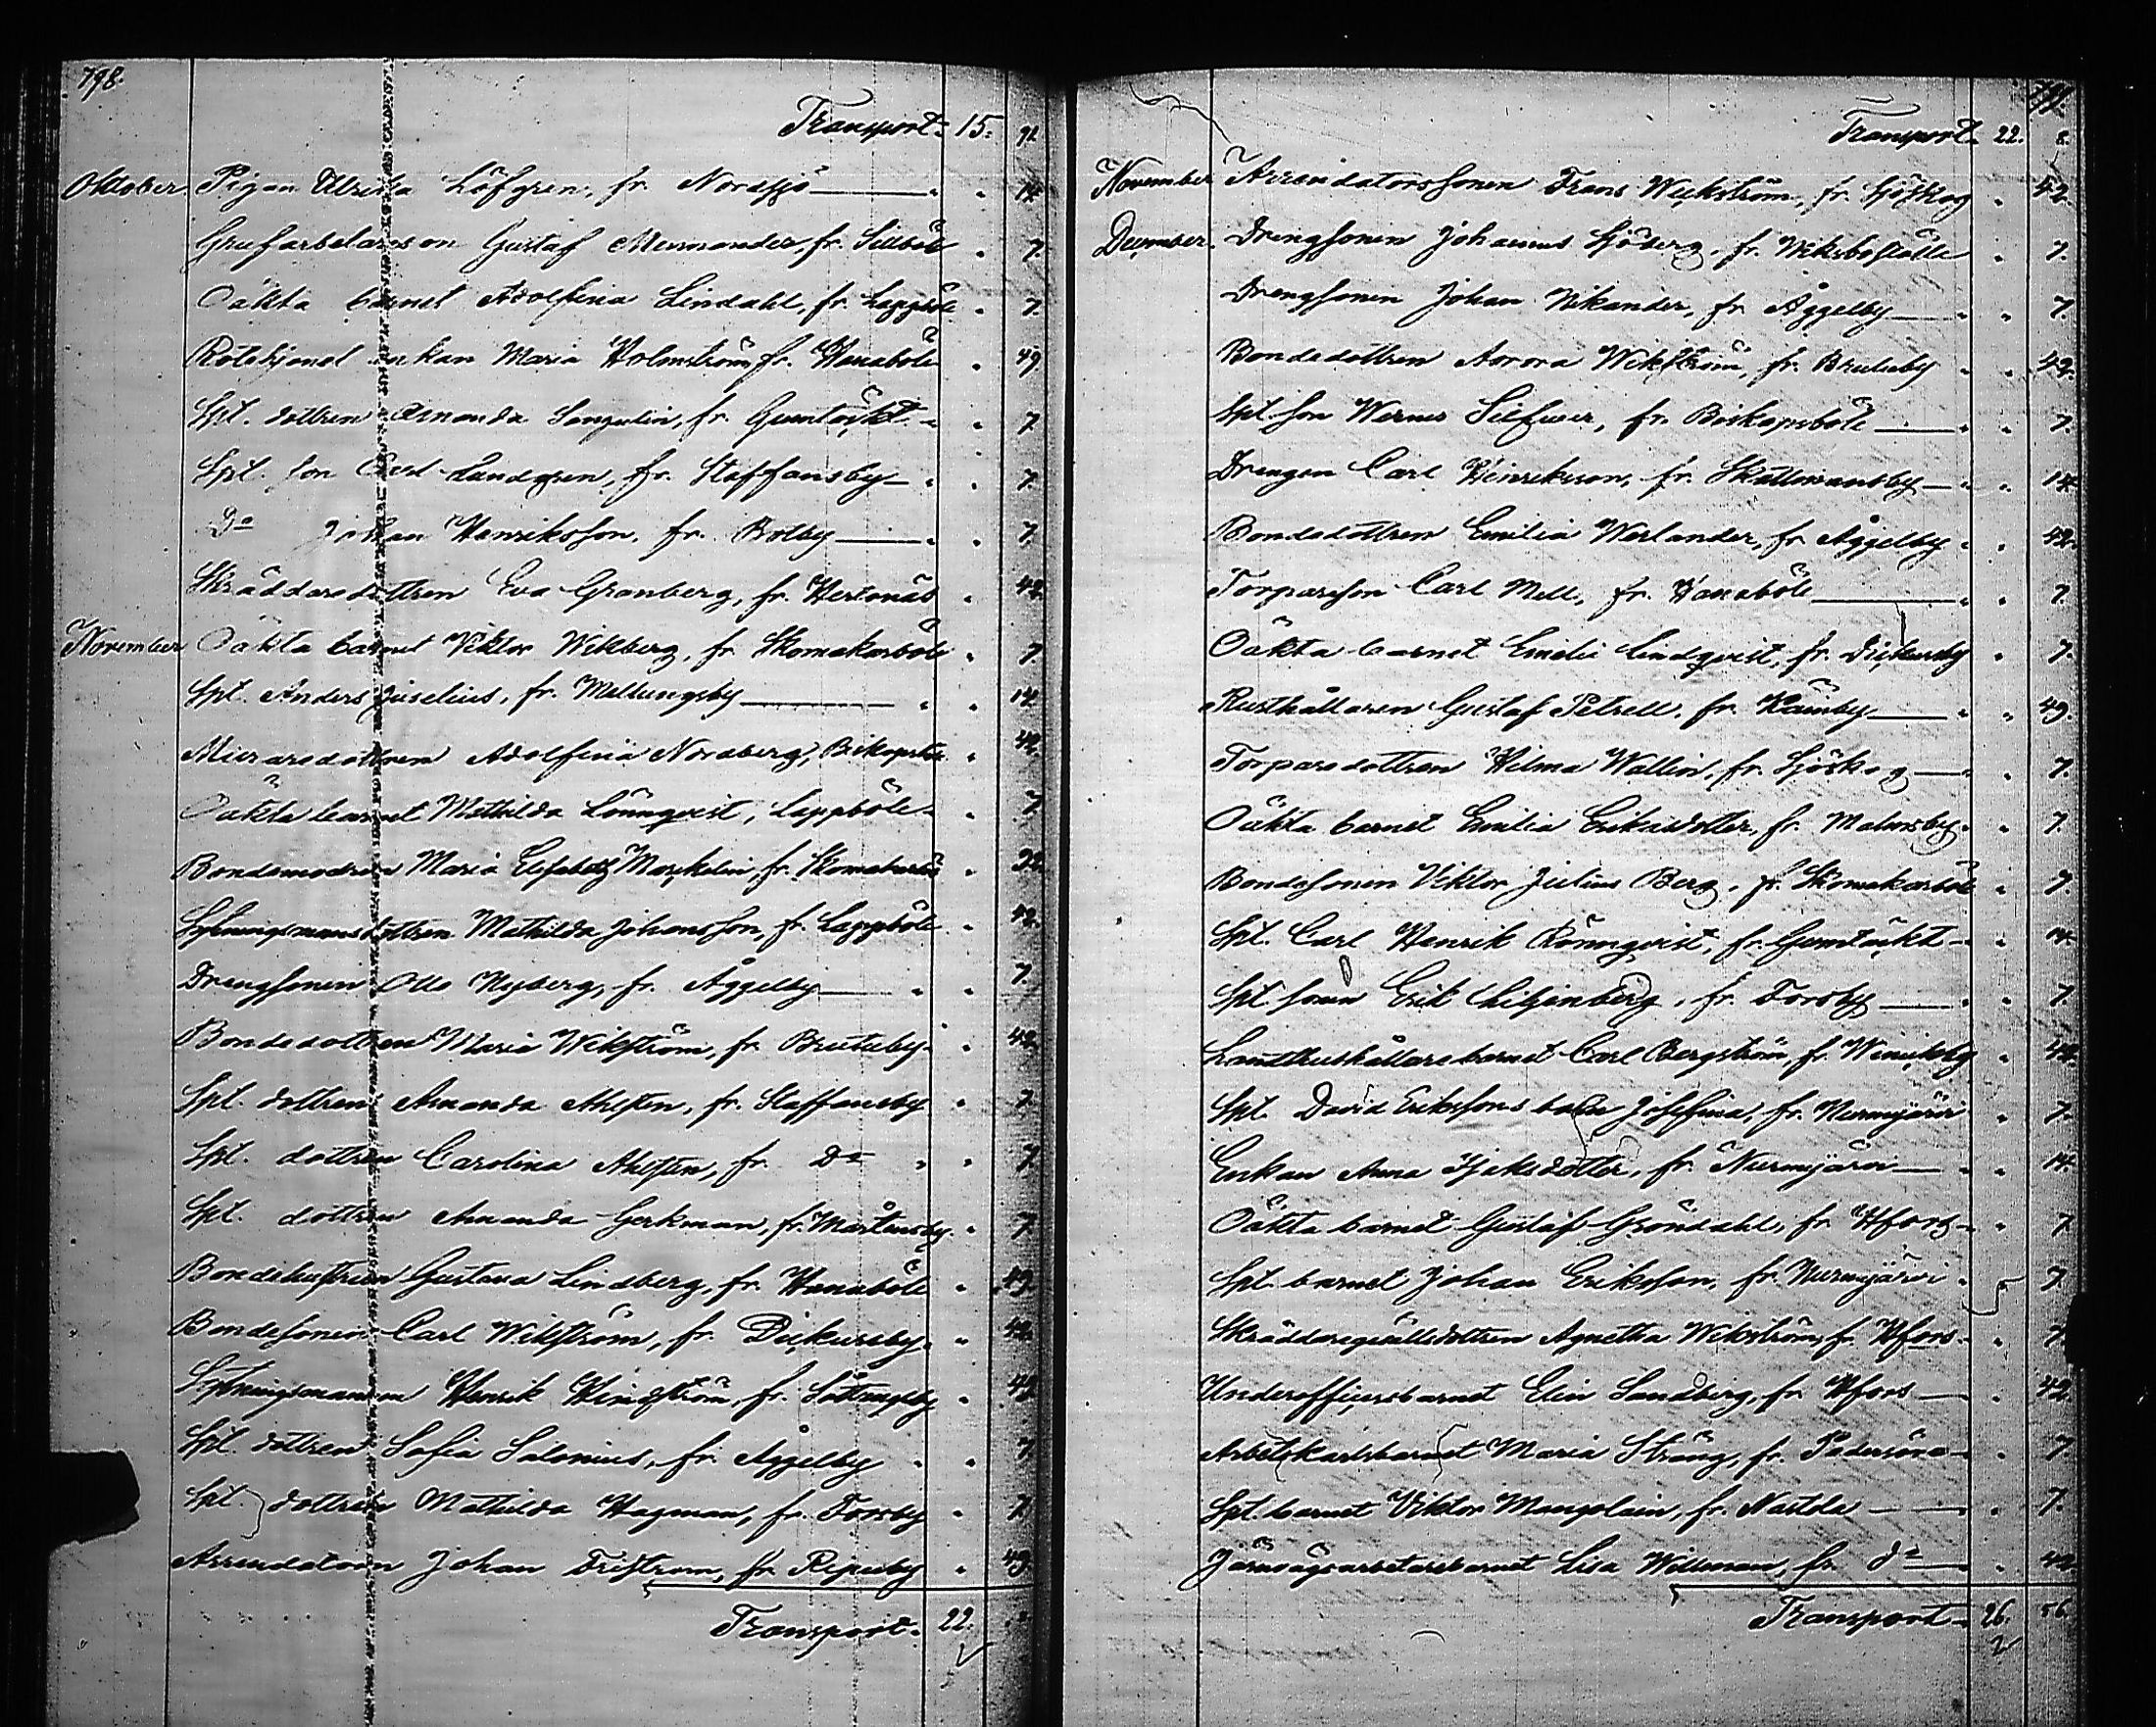 798.
Transport 15. 91.
Oktober Pigan Ulrika Löfgren, fr. Nordsjö " " 14.
Grufarbetareson Gustaf Mennander, fr. Sillböle " 7.
Oäkta barnet Adolfina Lindahl, fr. Lappböle " 7.
Rotehjonet enkan Maria Holmström, fr. Hanaböle " 49.
Spt. dottren Amanda, fr. Gumtäckt " " 7.
Spt. son Carl Landgren, fr. Staffansby " " 7.
Do Johan Henriksson, fr. Botby " " 7.
Skräddaredottren Eva Granberg, fr. Hertonäs " 42.
November Oäkta barnet Viktor Wikberg, fr. Skomakarböle " 7.
Spt. Anders Juselius, fr. Mellungsby " " 14.
Muraredottren Adolfina Nordberg, Biskopsböle " 42.
Oäkta barnet Mathilda Lönnqvist, Lappböle " 7.
Bondemodren Maria Elisabeth Marckelin, fr. Skomakarböle "
Sytningsmansdottren Mathilda Johansson, fr. Lappböle " 42.
Drengsonen Otto Nyberg, fr. Åggelby " " 7.
Bondedottren Maria Wikström, fr. Brutuby " 42.
Spt. dottren Amanda Ahlsten, fr. Staffansby " 7.
Spt. dottren Carolina Ahlsten, fr. Do " " 7.
Spt. dottren Amanda Gerkman, fr. Mårtensby " 7.
Bondehustrun Gustava Lindberg, fr. Hanaböle " 49.
Bondesonen Carl Wikström, fr. Dickursby " 42.
Sytningsmannen Henrik Hindström, fr. Sottungsby " 49.
Spt. dottren Sofia Salonius, fr. Åggelby " " 7.
Spt. dottren Mathilda Hagman, fr. Forsby " 7.
Arrendatorn Johan, fr. Ripuby " 49.
Transport 22.
799.
Transport 22. 8.
November Arrendatorssonen Frans Weckström, fr. Sjöskog " 42.
December. Drengsonen Johannes Sjöberg, fr. Viksbo " 7.
Drengsonen Johan Nikander, fr. Åggelby " " 7.
Bondedottren Aurora Wikström, fr. Brutuby " " 42.
Spt. son Werner, fr. Biskopsböle " " 7.
Drengen Carl Henriksson, fr. Skattmansby " " 14.
Bondedottren Emilia Weslander, fr. Åggelby " 42.
Torpareson Carl Mell, fr. Hanaböle " " 7.
Oäkta barnet Emelie Lindqvist, fr. Dickursby " 7.
Rusthållaren Gustaf Petrell, fr. Känby " " 49.
Torparedottren Hilma Wallin, fr. Sjöskog " " 7.
Oäkta barnet Emilia Eriksdotter, fr. Malmsby " 7.
Bondesonen Viktor Julius Berg, fr. Skomakarböle " 7.
Spt. Carl Henrik Rönnqvist, fr. Gumtäckt " 14.
Spt. sonen Erik Liljenberg, fr. Forsby " " 7.
Landbushållarebarnet Carl Bergström, fr. Winiksby " 42.
Spt. David Erikssons barn Josefina, fr. Nurmijärvi " 7.
Enkan Anna, fr. Nurmijärvi " " 14.
Oäkta barnet Gustaf Gröndahl, fr. Hfors " 7.
Spt. barnet Johan Eriksson, fr. Nurmijärvi " 7.
Skräddaregeselldottren Agnetha Wikström, fr. Hfors " 7.
Underofficersbarnet Elin Sandberg, fr. Hfors " 42.
Arbetskarlsbarnet Maria Sträng, fr. Padersöre " 7.
Spt. barnet Viktor, fr. Nastola " 7.
Järnvägsarbetarebarnet Lisa Willman, fr. Do " 42.
Transport 26. 56.